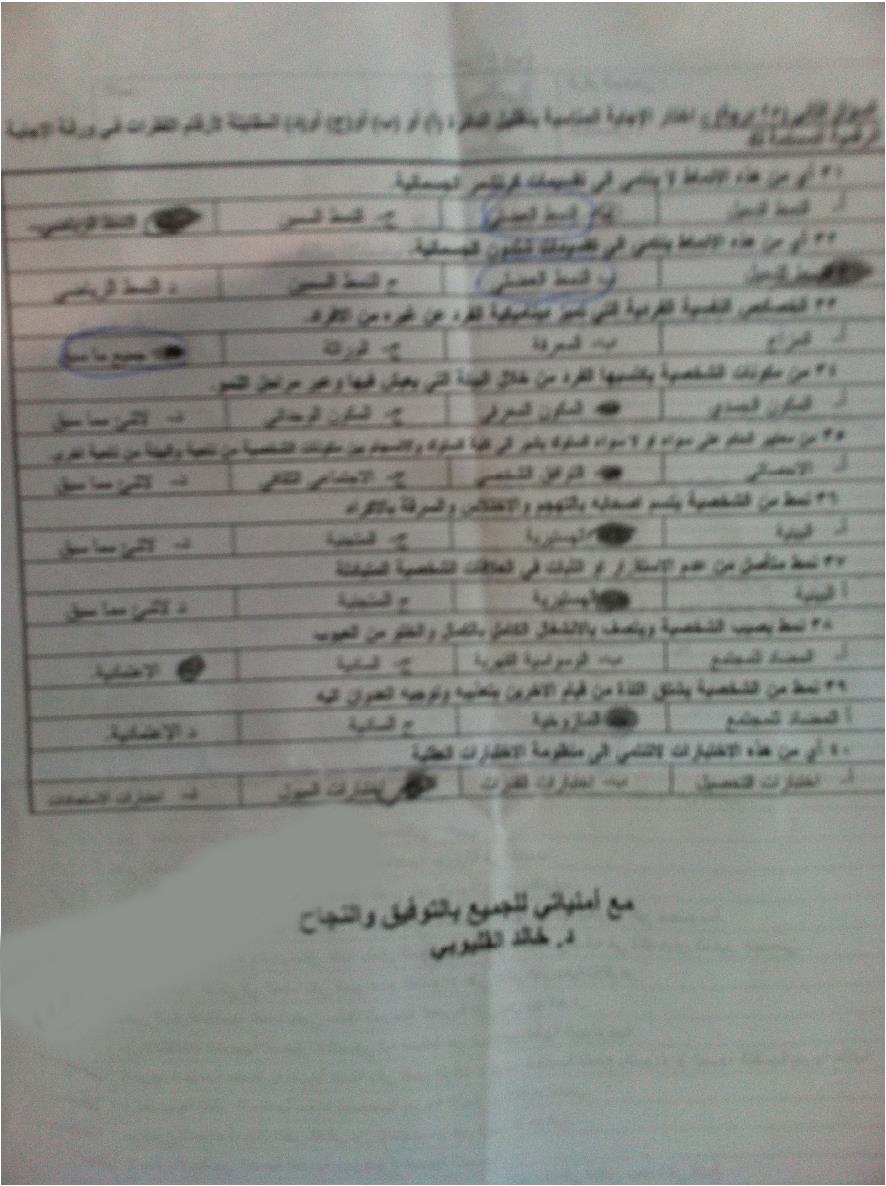 السؤال الثاني اختار الإجابة المناسبة بتظليل الدائرة (أ) أو (ب) أو (ج) أو (د) المقابلة لأرقام الفقرات في ورقة الإجابة
٣١ أي من هذه الانماط لا ينتمي الى تقسيمات كرتشمر الجسمانية.
أ- النمط النحيل النمط العضلي ج- النمط السمين النمط الرياضي
٣٢ أي من هذه الانماط ينتمي الى تقسيمات شلدون الجسمانية.
النمط النحيل ب- النمط العضلي ج النمط السمين د النمط الرياضي
٣٣ الخصائص النفسية الفردية التي تميز ديناميكية الفرد عن غيره من الافراد.
أ- المزاج ب- المعرفة ج- الوراثة جميع ما سبق
٣٤ من مكونات الشخصية يكتسبها الفرد من خلال البيئة التي يعيش فيها وعبر مراحل النمو.
أ- المكون الجسدي المكون المعرفي ج- المكون الوجداني د- لاشئ مما سبق
٣٥ من معايير الحكم على سواء او لا سواء السلوك يشير الى كلية السلوك والانسجام بين مكونات الشخصية من ناحية والبيئة من ناحية اخرى
أ- الاحصائي التوافق الشخصي ج- الاجتماعي الثقافي د- لاشئ مما سبق
٣٦ نمط من الشخصية يتسم اصحابه بالتهجم والاختلاس والسرقة بالاكراه
أ- البينية الهستيرية ج- المتجنبة د- لاشئ مما سبق
٣٧ نمط متأصل من عدم الاستقرار او الثبات في العلاقات الشخصية المتبادلة
أ البينية الهستيرية ج المتجنبة د لاشئ مما سبق
٣٨ نمط يصيب الشخصية ويتصف بالانشغال الكامل بالكمال والخلو من العيوب
أ- المضاد للمجتمع ب- الوسواسية القهرية ج- السادية الاعتمادية.
٣٩ نمط من الشخصية يشتق اللذة من قيام الاخرين بتعذيبه وتوجيه العدوان اليه
أ المضاد للمجتمع المازوخية ج السادية د الاعتمادية.
٤٠ أي من هذه الاختبارات لاتنتمي الى منظومة الاختبارات العقلية
أ- اختبارات التحصيل ب- اختبارات القدرات اختبارات الميول د- اختبارات الاستعدادات
مع أمنياتي للجميع بالتوفيق والنجاح
د. خالد القليوبي